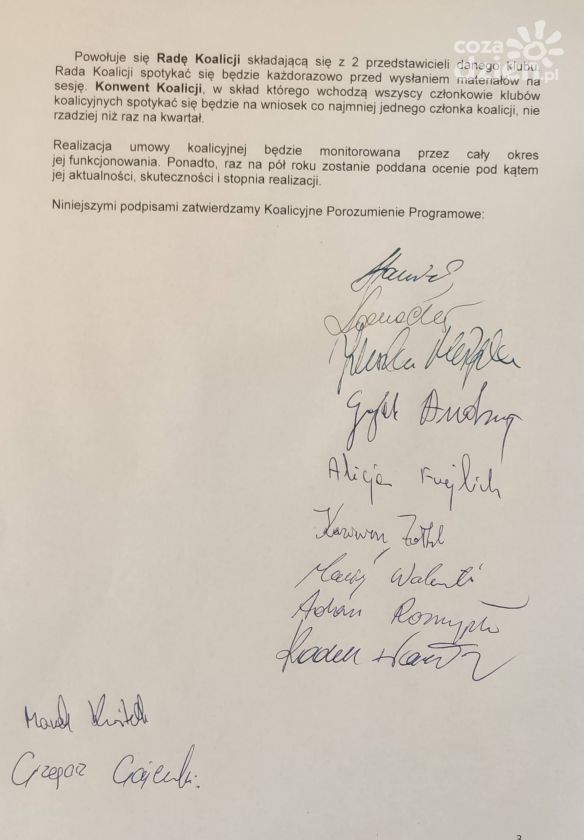 coza
dzien.pl
Powołuje się Radę Koalicji składającą się z 2 przedstawicieli danego klubu.
Rada Koalicji spotykać się będzie każdorazowo przed wysłaniem materiałów na
sesję. Konwent Koalicji, w skład którego wchodzą wszyscy członkowie klubów
koalicyjnych spotykać się będzie na wniosek co najmniej jednego członka koalicji, nie
rzadziej niż raz na kwartał.
Realizacja umowy koalicyjnej będzie monitorowana przez cały okres
jej funkcjonowania. Ponadto, raz na pół roku zostanie poddana ocenie pod kątem
jej aktualności, skuteczności i stopnia realizacji.
Niniejszymi podpisami zatwierdzamy Koalicyjne Porozumienie Programowe:
Alicja
Adrian
Marek
Grzegorz
3